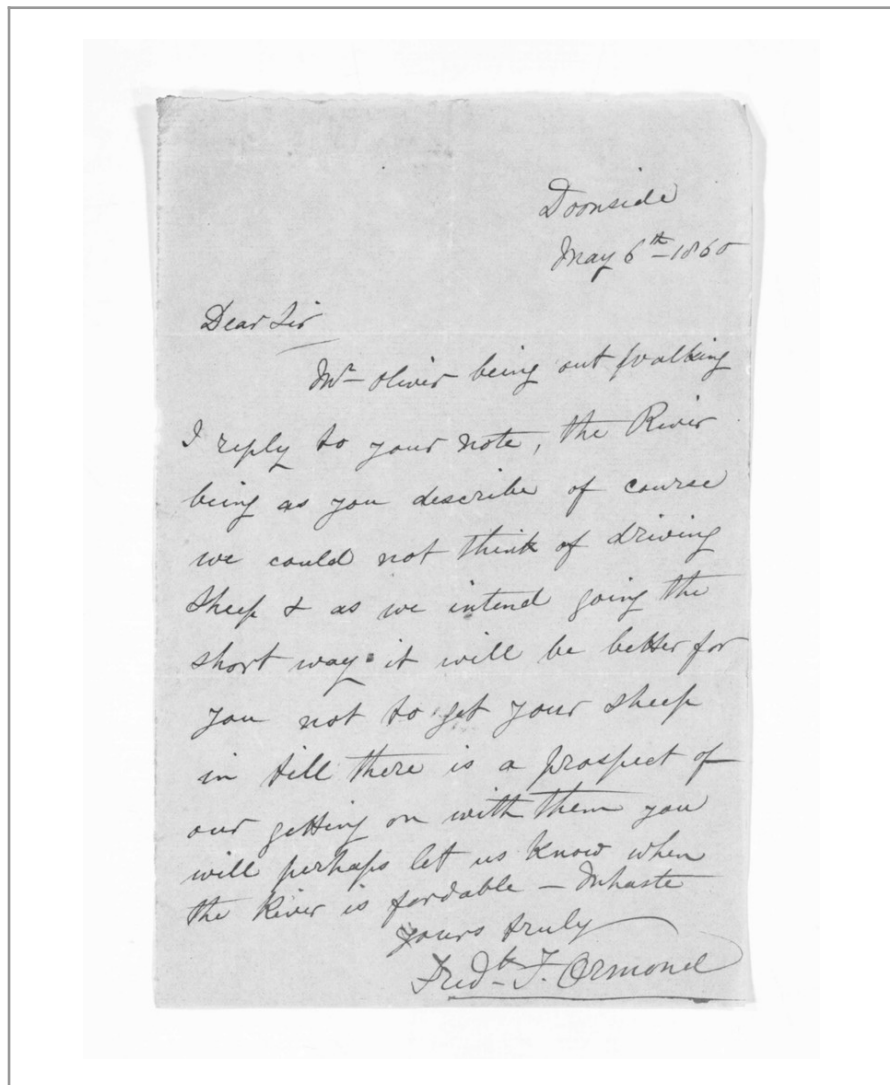 Doonside
May 6th 1860
Dear Sir
Mr Oliver being out walking
I reply to your note, the River
being as you describe of course
we could not think of driving
sheep & as we intend going the
short way it will be better for
you not to get your sheep
in till there is a prospect of
our getting on with them you
will perhaps let us know when
the River is fordable – In haste
yours truly
Fredk F. Ormond